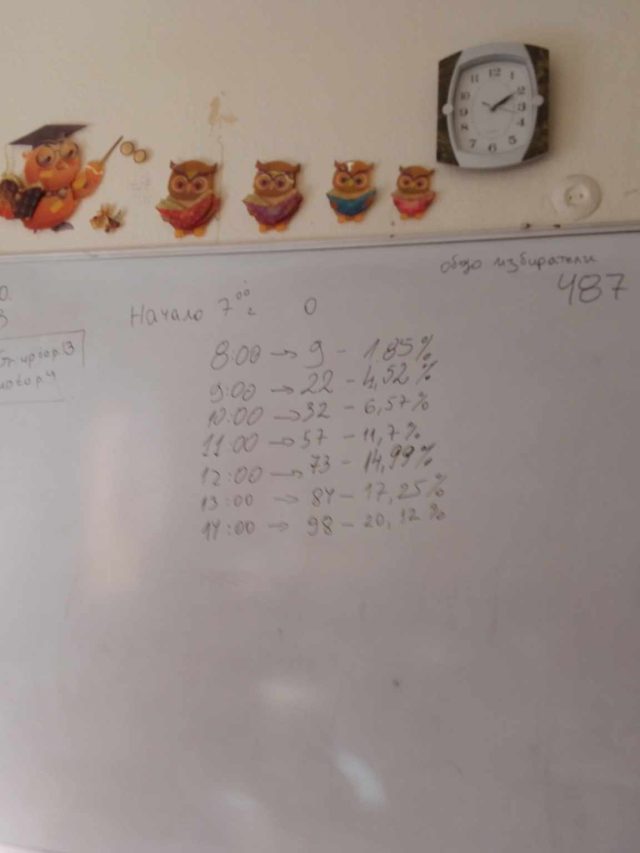 12
11 1
10 2
9 3
8 4
7 6 5
общо избиратели
487
Начало 7⁰⁰ г. 0
8:00 → 9 - 1,85%
9:00 → 22 - 4,52%
10:00 → 32 - 6,57%
11:00 → 57 - 11,7%
12:00 → 73 - 14,99%
13:00 → 84 - 17,25%
14:00 → 98 - 20,12%